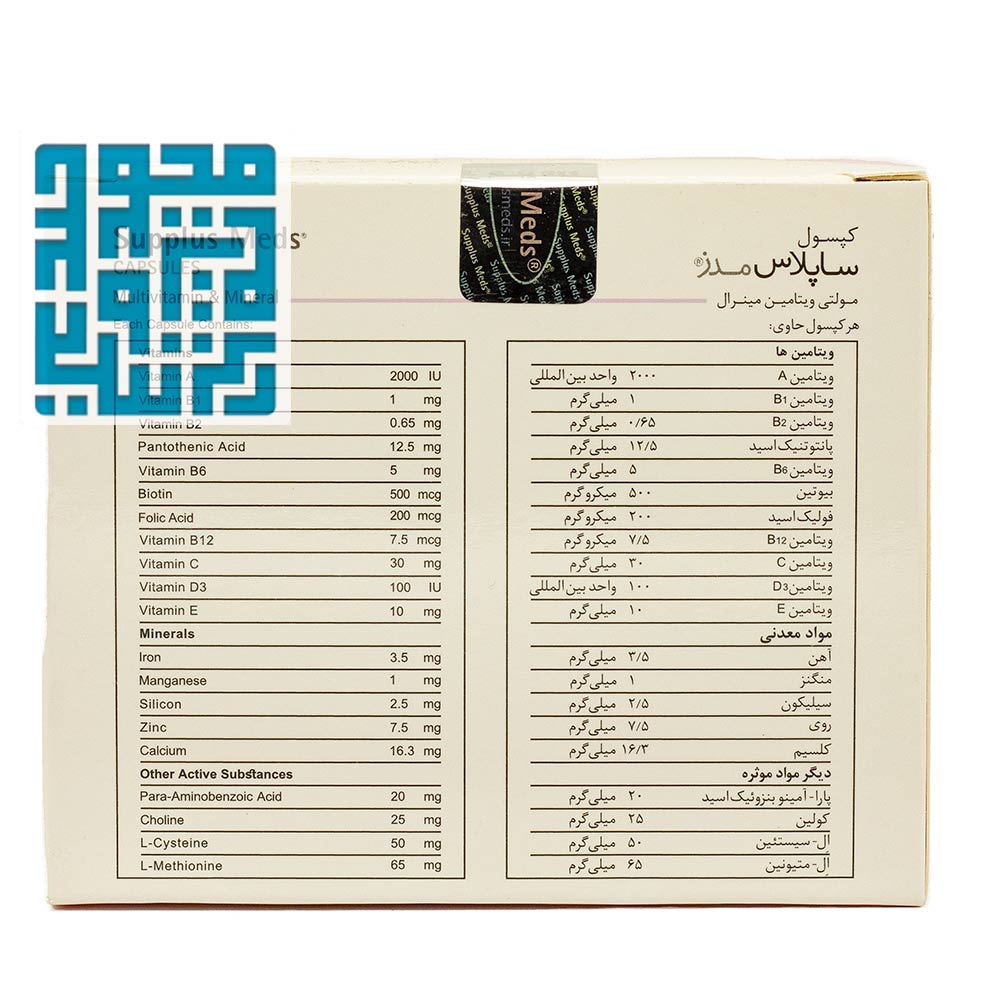 Supplus Meds®
CAPSULES
Multivitamin & Mineral
Each Capsule Contains:
Vitamins
Vitamin A 2000 IU
Vitamin B1 1 mg
Vitamin B2 0.65 mg
Pantothenic Acid 12.5 mg
Vitamin B6 5 mg
Biotin 500 mcg
Folic Acid 200 mcg
Vitamin B12 7.5 mcg
Vitamin C 30 mg
Vitamin D3 100 IU
Vitamin E 10 mg
Minerals
Iron 3.5 mg
Manganese 1 mg
Silicon 2.5 mg
Zinc 7.5 mg
Calcium 16.3 mg
Other Active Substances
Para-Aminobenzoic Acid 20 mg
Choline 25 mg
L-Cysteine 50 mg
L-Methionine 65 mg
Meds®
smeds.ir
Supplus Meds®
Supplus Meds®
Supplus Meds®
کپسول
ساپلاس مدز®
مولتی ویتامین مینرال
هر کپسول حاوی:
ویتامین ها
ویتامین A ۲۰۰۰ واحد بین المللی
ویتامین B1 ۱ میلی گرم
ویتامین B2 ۰/۶۵ میلی گرم
پانتوتنیک اسید ۱۲/۵ میلی گرم
ویتامین B6 ۵ میلی گرم
بیوتین ۵۰۰ میکرو گرم
فولیک اسید ۲۰۰ میکرو گرم
ویتامین B12 ۷/۵ میکرو گرم
ویتامین C ۳۰ میلی گرم
ویتامین D3 ۱۰۰ واحد بین المللی
ویتامین E ۱۰ میلی گرم
مواد معدنی
آهن ۳/۵ میلی گرم
منگنز ۱ میلی گرم
سیلیکون ۲/۵ میلی گرم
روی ۷/۵ میلی گرم
کلسیم ۱۶/۳ میلی گرم
دیگر مواد موثره
پارا- آمینو بنزوئیک اسید ۲۰ میلی گرم
کولین ۲۵ میلی گرم
اِل- سیستئین ۵۰ میلی گرم
اِل- متیونین ۶۵ میلی گرم